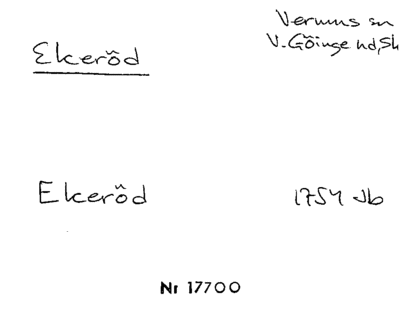 Verums sn
Ekeröd V. Göinge hd, Sk
Ekeröd 1754 Jb
Nr 17700